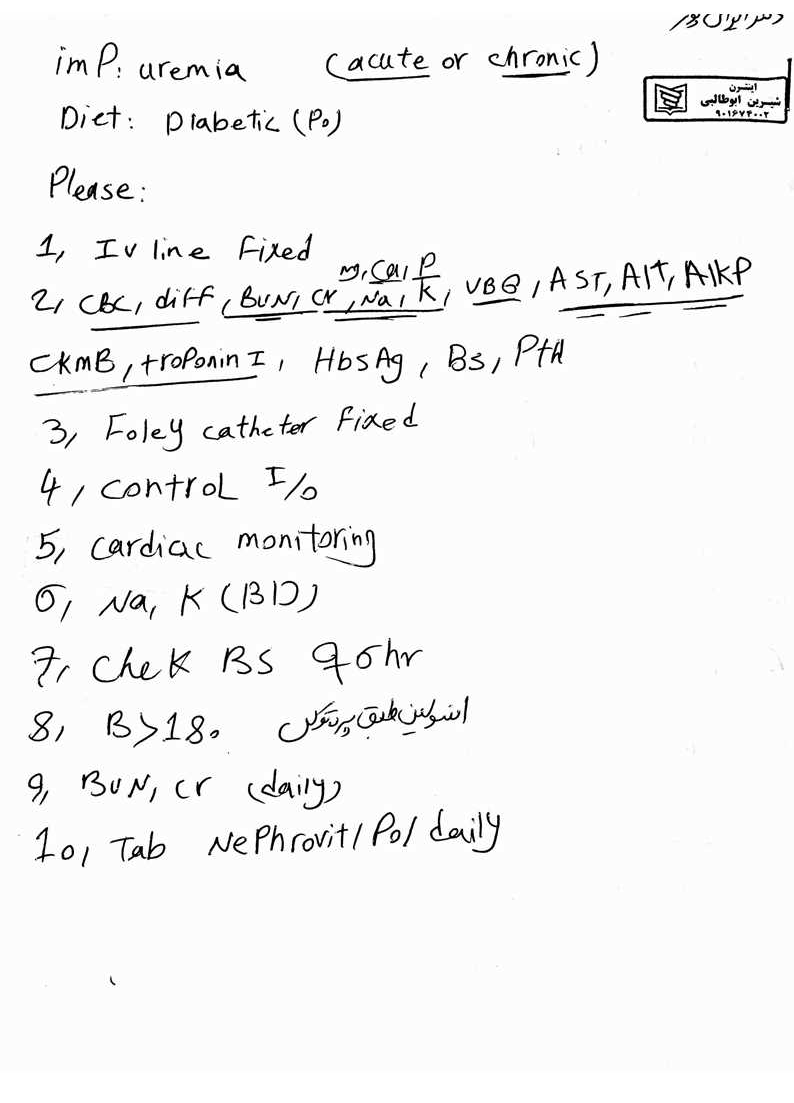 دکتر ایران پور
imp: uremia (acute or chronic)
اینترن
شیرین ابوطالبی
۹۰۱۶۷۴۰۰۲
Diet: Diabetic (Po)
Please:
1, Iv line Fixed
M, Ca, P
2, CBC, diff, BUN, Cr, Na, K, VBG, AST, AlT, AlkP
CKMB, troponin I, HbsAg, Bs, PtH
3, Foley catheter Fixed
4, control I/o
5, cardiac monitoring
6, Na, K (BD)
7, chek BS q6hr
8, B>180 انسولین طبق پروتکل
9, BUN, cr (daily)
10, Tab Nephrovit/Po/daily